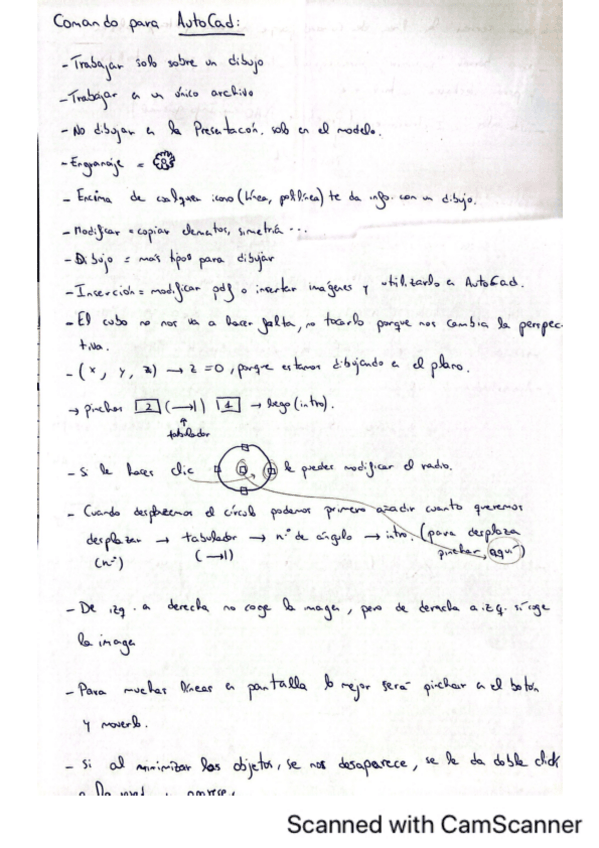 Comando para AutoCad:
- Trabajar solo sobre un dibujo
- Trabajar en un único archivo
- No dibujar en la Presentacón, solo en el modelo.
- Engranaje =
- Encima de cualquier icono (línea, polilínea) te da info. con un dibujo.
- Modificar = copiar elementos, simetría ...
- Dibujo = más tipos para dibujar
- Inserción = modificar pdf o insertar imágenes y utilizarlo en AutoCad.
- El cubo no nos va a hacer falta, no tocarlo porque nos cambia la perspec-
tiva.
- (x, y, z) → z = 0, porque estamos dibujando en el plano.
→ pinchar 2 (→|) 1 → luego (intro).
↑
tabulador
- Si le haces clic le puedes modificar el radio.
- Cuando desplacemos el círculo podemos primero añadir cuanto queremos
desplazar → tabulador → n.º de ángulo → intro. (para desplaza
(nº) (→|) pinchar aquí)
- De izq. a derecha no coge la imagen, pero de derecha a izq. sí coge
la imagen
- Para muchas líneas en pantalla lo mejor será pinchar en el botón
y moverlo.
- Si al minimizar los objetos, se nos desaparece, se le da doble click
Scanned with CamScanner